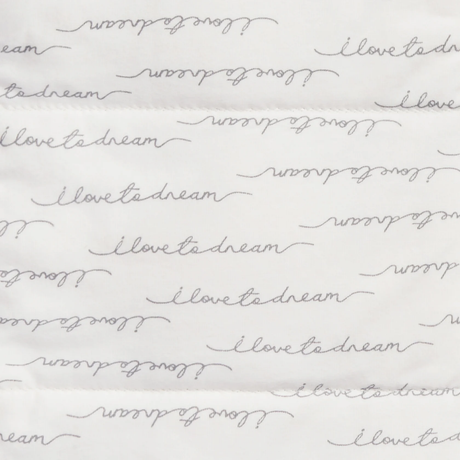 i love to dream
eam
i love to dr
i love to dream
to dream
i love
i love to dream
i love to dream
i love to dream
i love to dream
ve to dream
i l
i love to dream
dream
i love
i love to dream
i love to dream
i love to dream
i love to dream
i love to dream
i love to dream
eam
i love to d